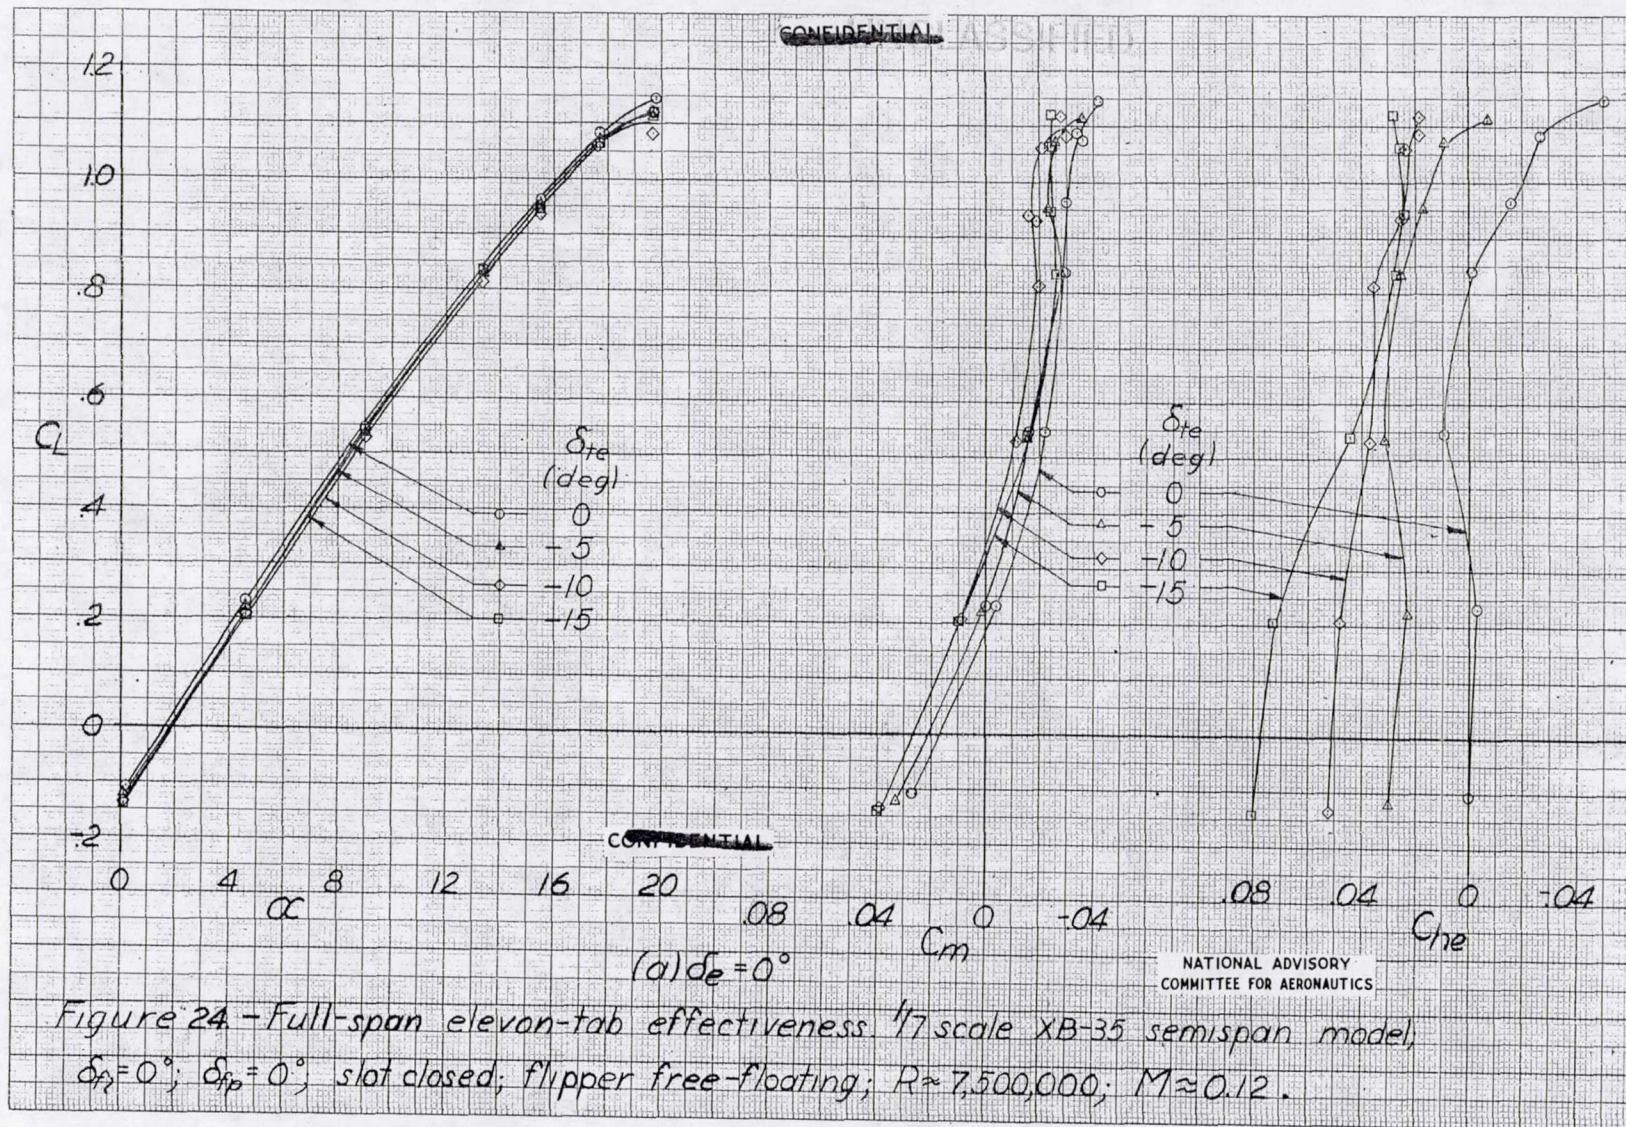 CONFIDENTIAL
1.2
1.0
.8
.6
C_L
.4
.2
0
-.2
δte
(deg)
0
-5
-10
-15
δte
(deg)
0
-5
-10
-15
CONFIDENTIAL
0 4 8 12 16 20
α
.08 .04 0 -.04
Cm
.08 .04 0 -.04
Che
(a) δe = 0°
NATIONAL ADVISORY
COMMITTEE FOR AERONAUTICS
Figure 24.-Full-span elevon-tab effectiveness. 1/7 scale XB-35 semispan model;
δfl=0°; δfp=0°; slot closed; flipper free-floating; R≈7,500,000; M≈0.12.